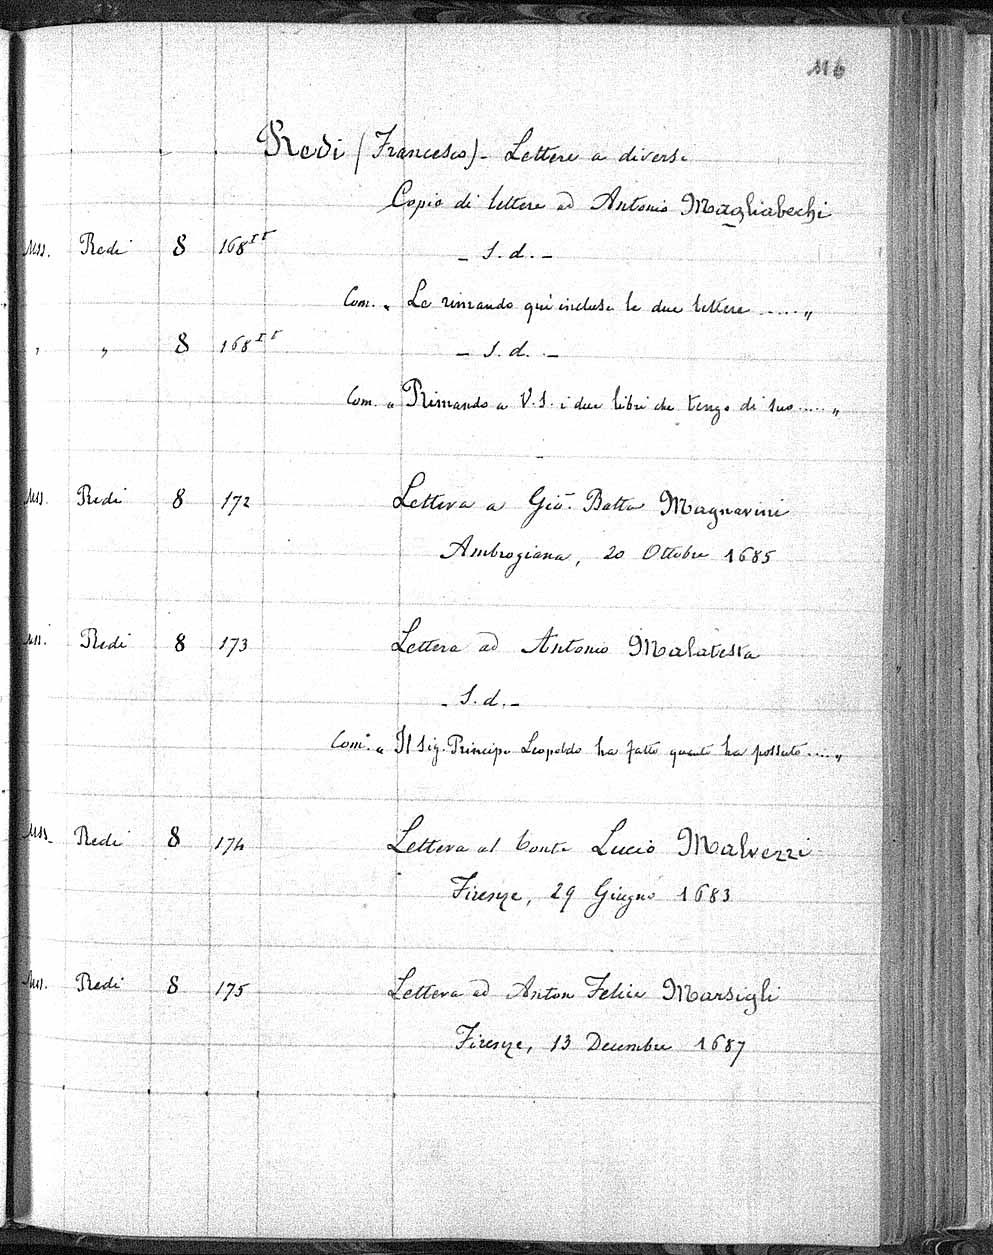 116
Redi (Francesco) - Lettere a diversi
Copie di lettere ad Antonio Magliabechi
Mss. Redi 8 168 II - S. d. -
Com. „ Le rimando qui incluse le due lettere ..... „
„ „ 8 168 II - S. d. -
Com. „ Rimando a V. S. i due libri che tengo di suo ..... „
Mss. Redi 8 172 Lettera a Gio. Batta Magnavini
Ambrogiana, 20 Ottobre 1685
Mss. Redi 8 173 Lettera ad Antonio Malatesta
- S. d. -
Com. „ Il Sig. Principe Leopoldo ha fatto quanto ha possuto .... „
Mss. Redi 8 174 Lettera al Conte Lucio Malvezzi
Firenze, 29 Giugno 1683
Mss. Redi 8 175 Lettera ad Anton Felice Marsigli
Firenze, 13 Decembre 1687